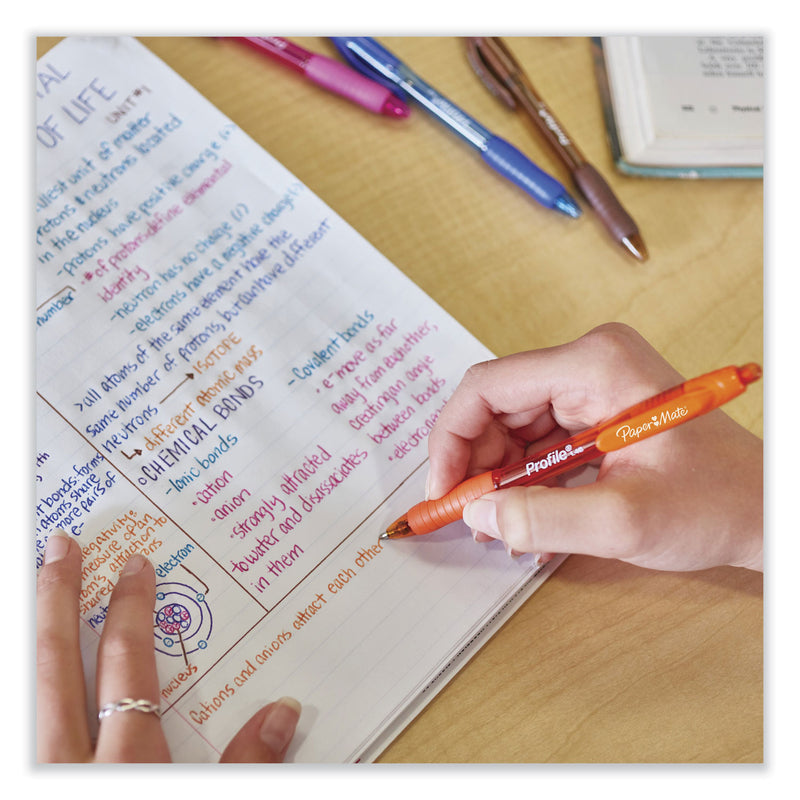 AL
OF LIFE
UNIT #1
allest unit of matter
protons & neutrons located
in the nucleus
-protons have positive charge (1)
• # of protons define elemental
identity
-neutron has no charge (1)
-electrons have a negative charge (1)
>all atoms of the same element have the
same number of protons, but can have different
neutrons → ISOTOPE
→ different atomic mass
number
○ CHEMICAL BONDS
-Ionic bonds
• cation
• anion
• strongly attracted
to water and dissassociates
in them
-Covalent bonds
• e⁻ move as far
away from each other,
creating an angle
between bonds
• electroneg
t bonds: forms
atoms share
more pairs of
e-
egativity:
measure of an
om's attraction to
shared
electron
neut
nucleus
Cations and anions attract each other
Profile
Paper Mate